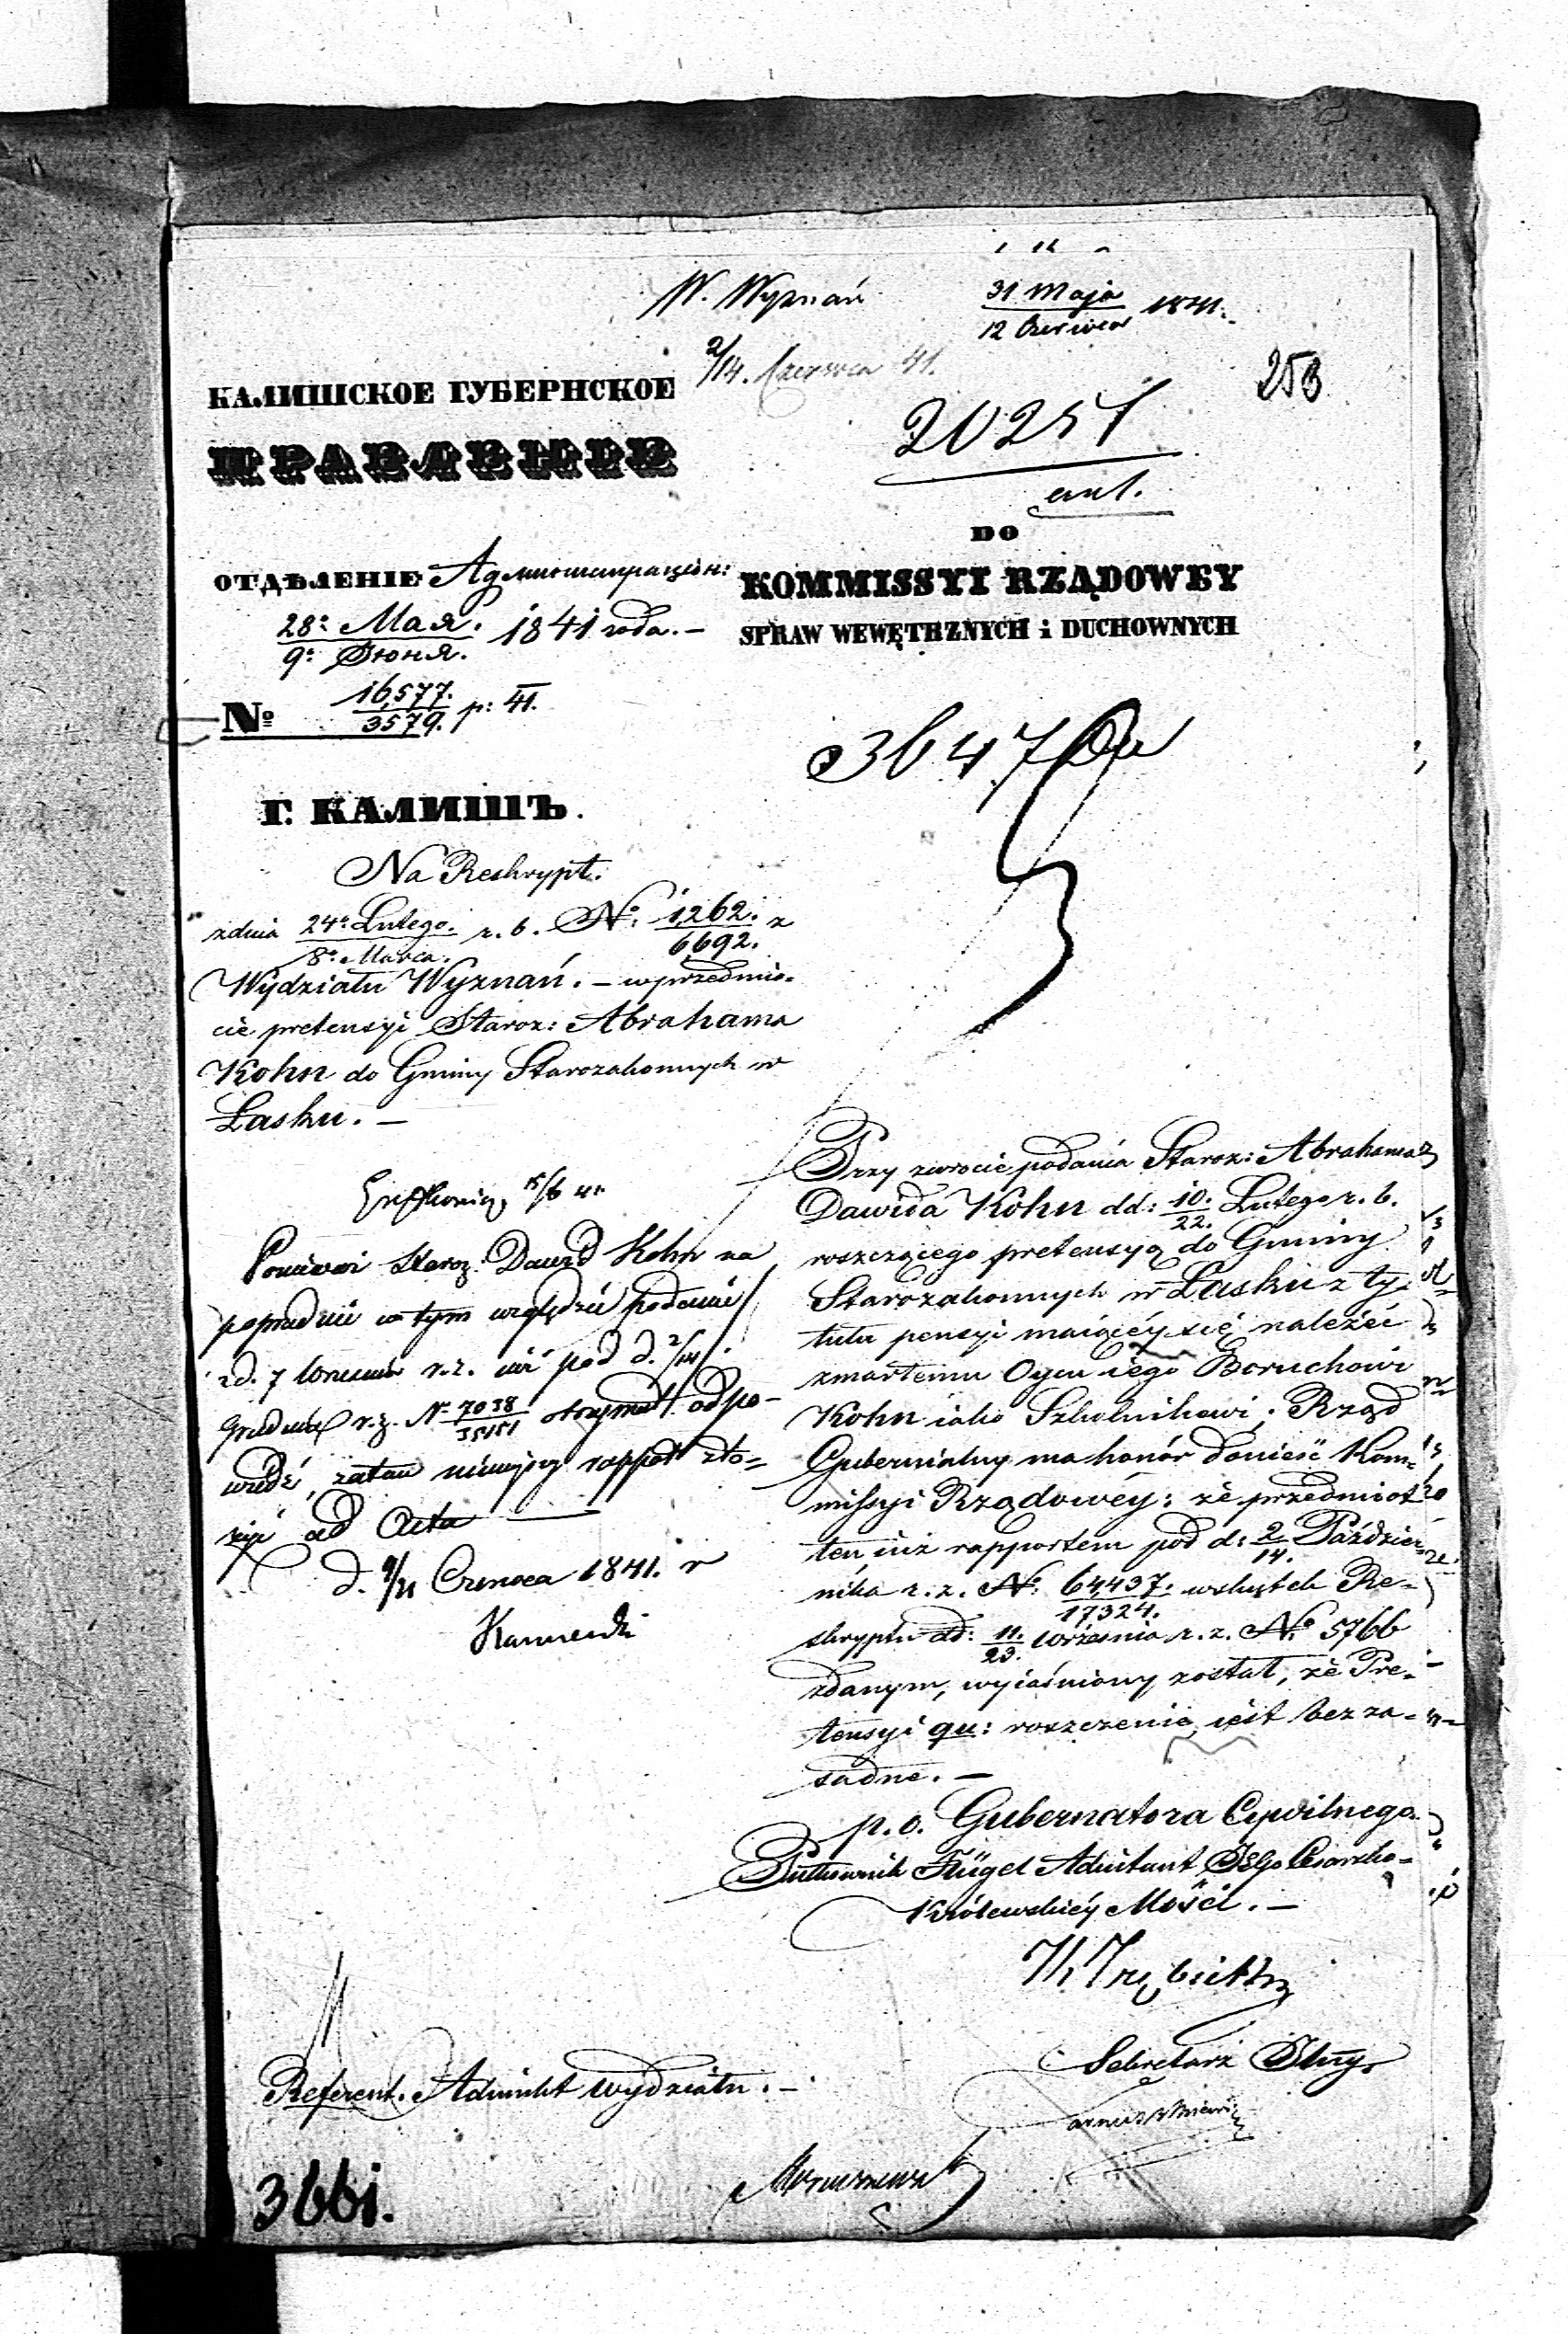 W. Wyznań
31 Maja
12 Czerwca 1841.
2/14. Czerwca 41.
253
20251
ant.
КАЛИШСКОЕ ГУБЕРНСКОЕ
ПРАВЛЕНІЕ
ОТДѢЛЕНІЕ Администрацiон:
28: Мая.
9: Iюня. 1841 года. –
№ 16,577.
3579. р: 41.
Г. КАЛИШЪ.
DO
KOMMISSYI RZĄDOWEY
SPRAW WEWĘTRZNYCH i DUCHOWNYCH
3647
Na Reskrypt.
z dnia 24: Lutego.
8: Marca. r. b. No: 1,262.
6692. z
Wydziału Wyznań. – w przedmio-
cie pretensyi Staroz: Abrahama
Kohn do Gminy Starozakonnych w
Łasku. –
15/6 41
Ponieważ Staroz. Dawid Kohn na
poprzednie w tym względzie podanie
z d. 7 r. z. już pod d. 2/14
Grudnia r. z. No 7038
35151 otrzymał odpo-
wiedź, zatem niniejszy rapport zło-
żyć ad Acta
d. 9/21 Czerwca 1841. r
Przy zwrocie podania Staroz: Abrahama
Dawida Kohn dd: 10.
22. Lutego r. b.
roszczącego pretensyą do Gminy
Starozakonnych w Łasku z ty-
tułu pensyi maiącéy się należéć
zmarłemu Oycu iego Boruchowi
Kohn iako Szkolnikowi, Rząd
Gubernialny ma honór donieść Kom-
missyi Rządowéy: że przedmiot
ten, iuż rapportem pod d: 2.
14. Paździer-
nika r. z. No: 64437.
17324. wskutek Re-
skryptu dd: 11.
23. Września r. z. No 5766
zdanym, wyiaśniony został, że Pre-
tensyi qu: roszczenie, iest bezza-
sadne. –
p. o. Gubernatora Cywilnego
Pułkownik Flügel Adiutant Jego Cesarsko-
Królewskiéy Mości. –
Sekretarz Jlny
Referent. Adminst Wydziału. –
3661.